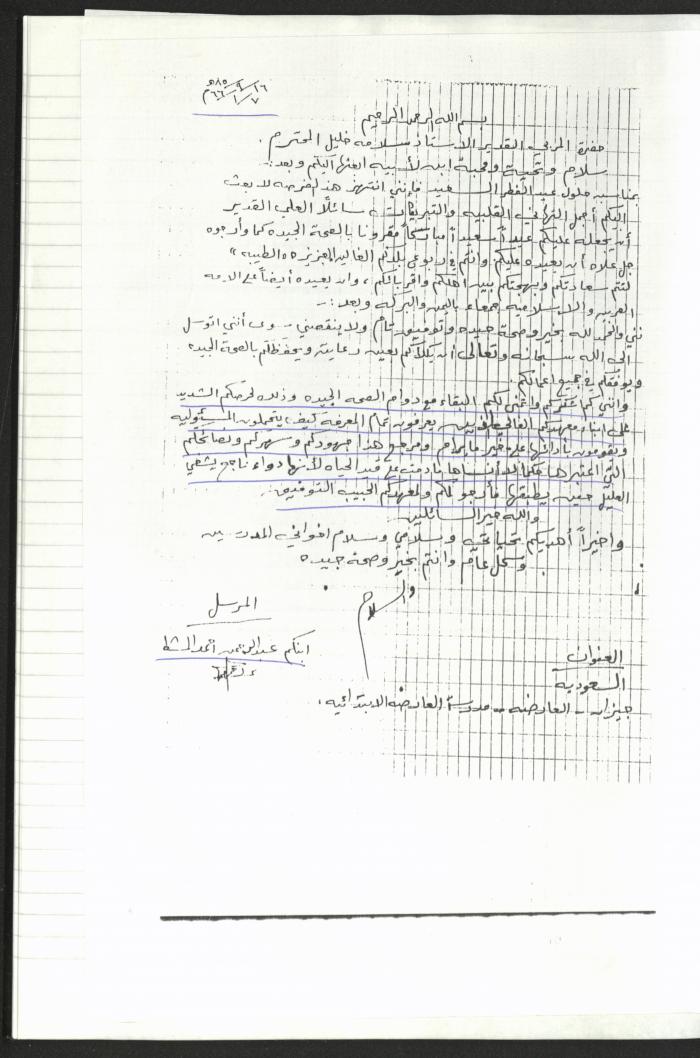 ١٦/٩/٨٥هـ
٧/١/٦٦م
بسم الله الرحمن الرحيم
حضرة المربي القدير الاستاذ سلامه خليل المحترم .
سلام وتحية ومحبة ابن لأبيه ابعثها اليكم وبعد :-
بمناسبه حلول عيد الفطر السعيد فإنني انتهز هذه الفرصه لابعث
اليكم أجل التهاني القلبيه والتبريكات ، سائلاً العلي القدير
أن يجعله عليكم عيداً سعيداً مباركاً مقرونا بالصحة الجيده كما وأرجوه
جل علاه أن يعيده عليكم وانتم في ربوع بلادكم الغاليه العزيزه الطيبه
لتتم سعادتكم وبهجتكم بين اهلكم واقربائكم ، وان يعيده أيضاً على الامه
العربيه والاسلاميه جمعاء باليمن والبركه وبعد :-
فإني والحمد لله بخير وصحة جيده وتوفيق تام ولا ينقصني سوى أنني اتوسل
الى الله سبحانه وتعالى أن يكلأكم بعين رعايته ويحفظكم بالصحة الجيده
ويوفقكم في جميع اعمالكم .
وانني كم أشكركم واتمنى لكم البقاء مع دوام الصحه الجيده وذلك لحرصكم الشديد
على ابناء معهدكم الغالي الذين يعرفون تمام المعرفة كيف يتحملون المسئوليه
ويقومون بأدائها على خير ما يرام ومرجع هذا جهودكم وسهركم ونصائحكم
التي اعتبرها حكما لن أنساها ما دمت على قيد الحياه لأنها دواء ناجع يشفي
العليل حين يطبقها فأرجو لكم ولمعهدكم الحبيب التوفيق .
والله خير السائلين
واخيراً أهديكم تحياتي وسلامي وسلام اخواني المدرسين
وكل عام وانتم بخير وصحه جيده
والسلام
المرسل
ابنكم عبدالرحمن احمد
العنوان
السعوديه
جيزان - العارضه - مدرسة العارضه الابتدائيه .